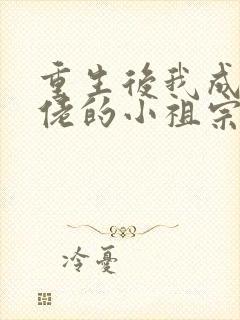 重生後我成
佬的小祖宗
冷憂